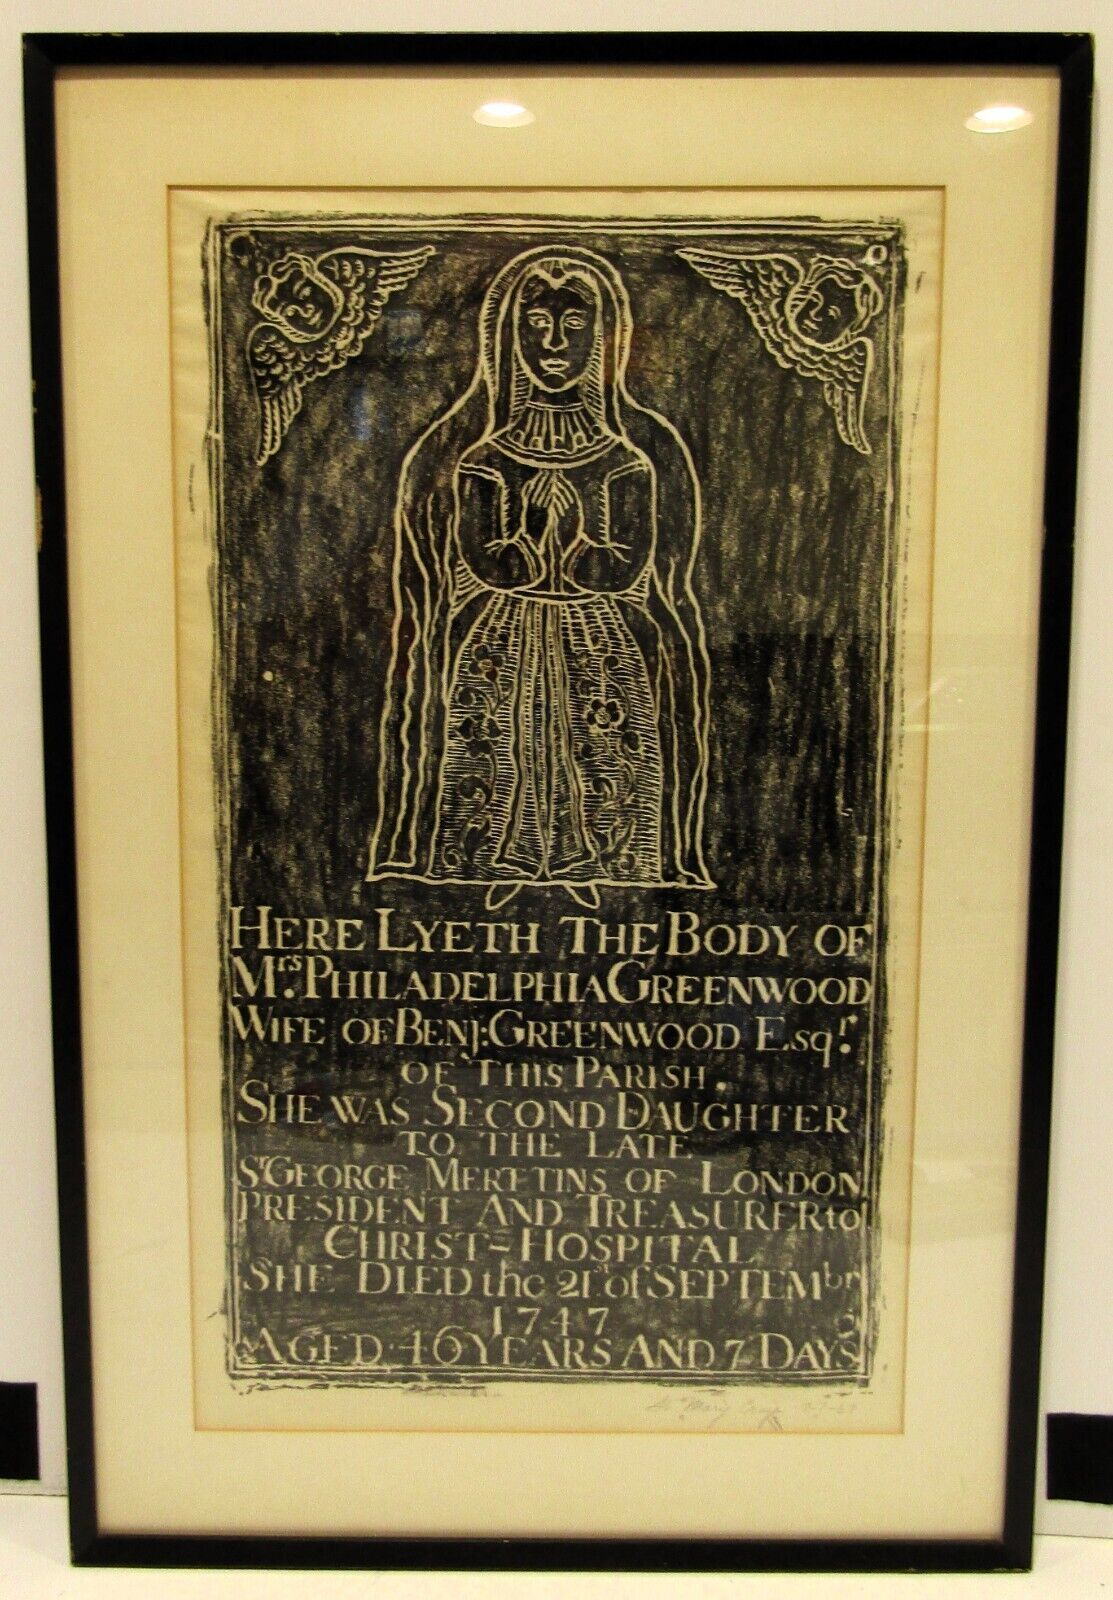 HERE LYETH THE BODY OF
Mrs. PHILADELPHIA GREENWOOD
WIFE OF BENJ: GREENWOOD Esqr.
OF THIS PARISH.
SHE WAS SECOND DAUGHTER
TO THE LATE
Sr GEORGE MERTTINS OF LONDON
PRESIDENT AND TREASURER to
CHRIST-HOSPITAL
SHE DIED the 21st of SEPTEMbr
1747
AGED 46 YEARS AND 7 DAYS
St Mary Cray